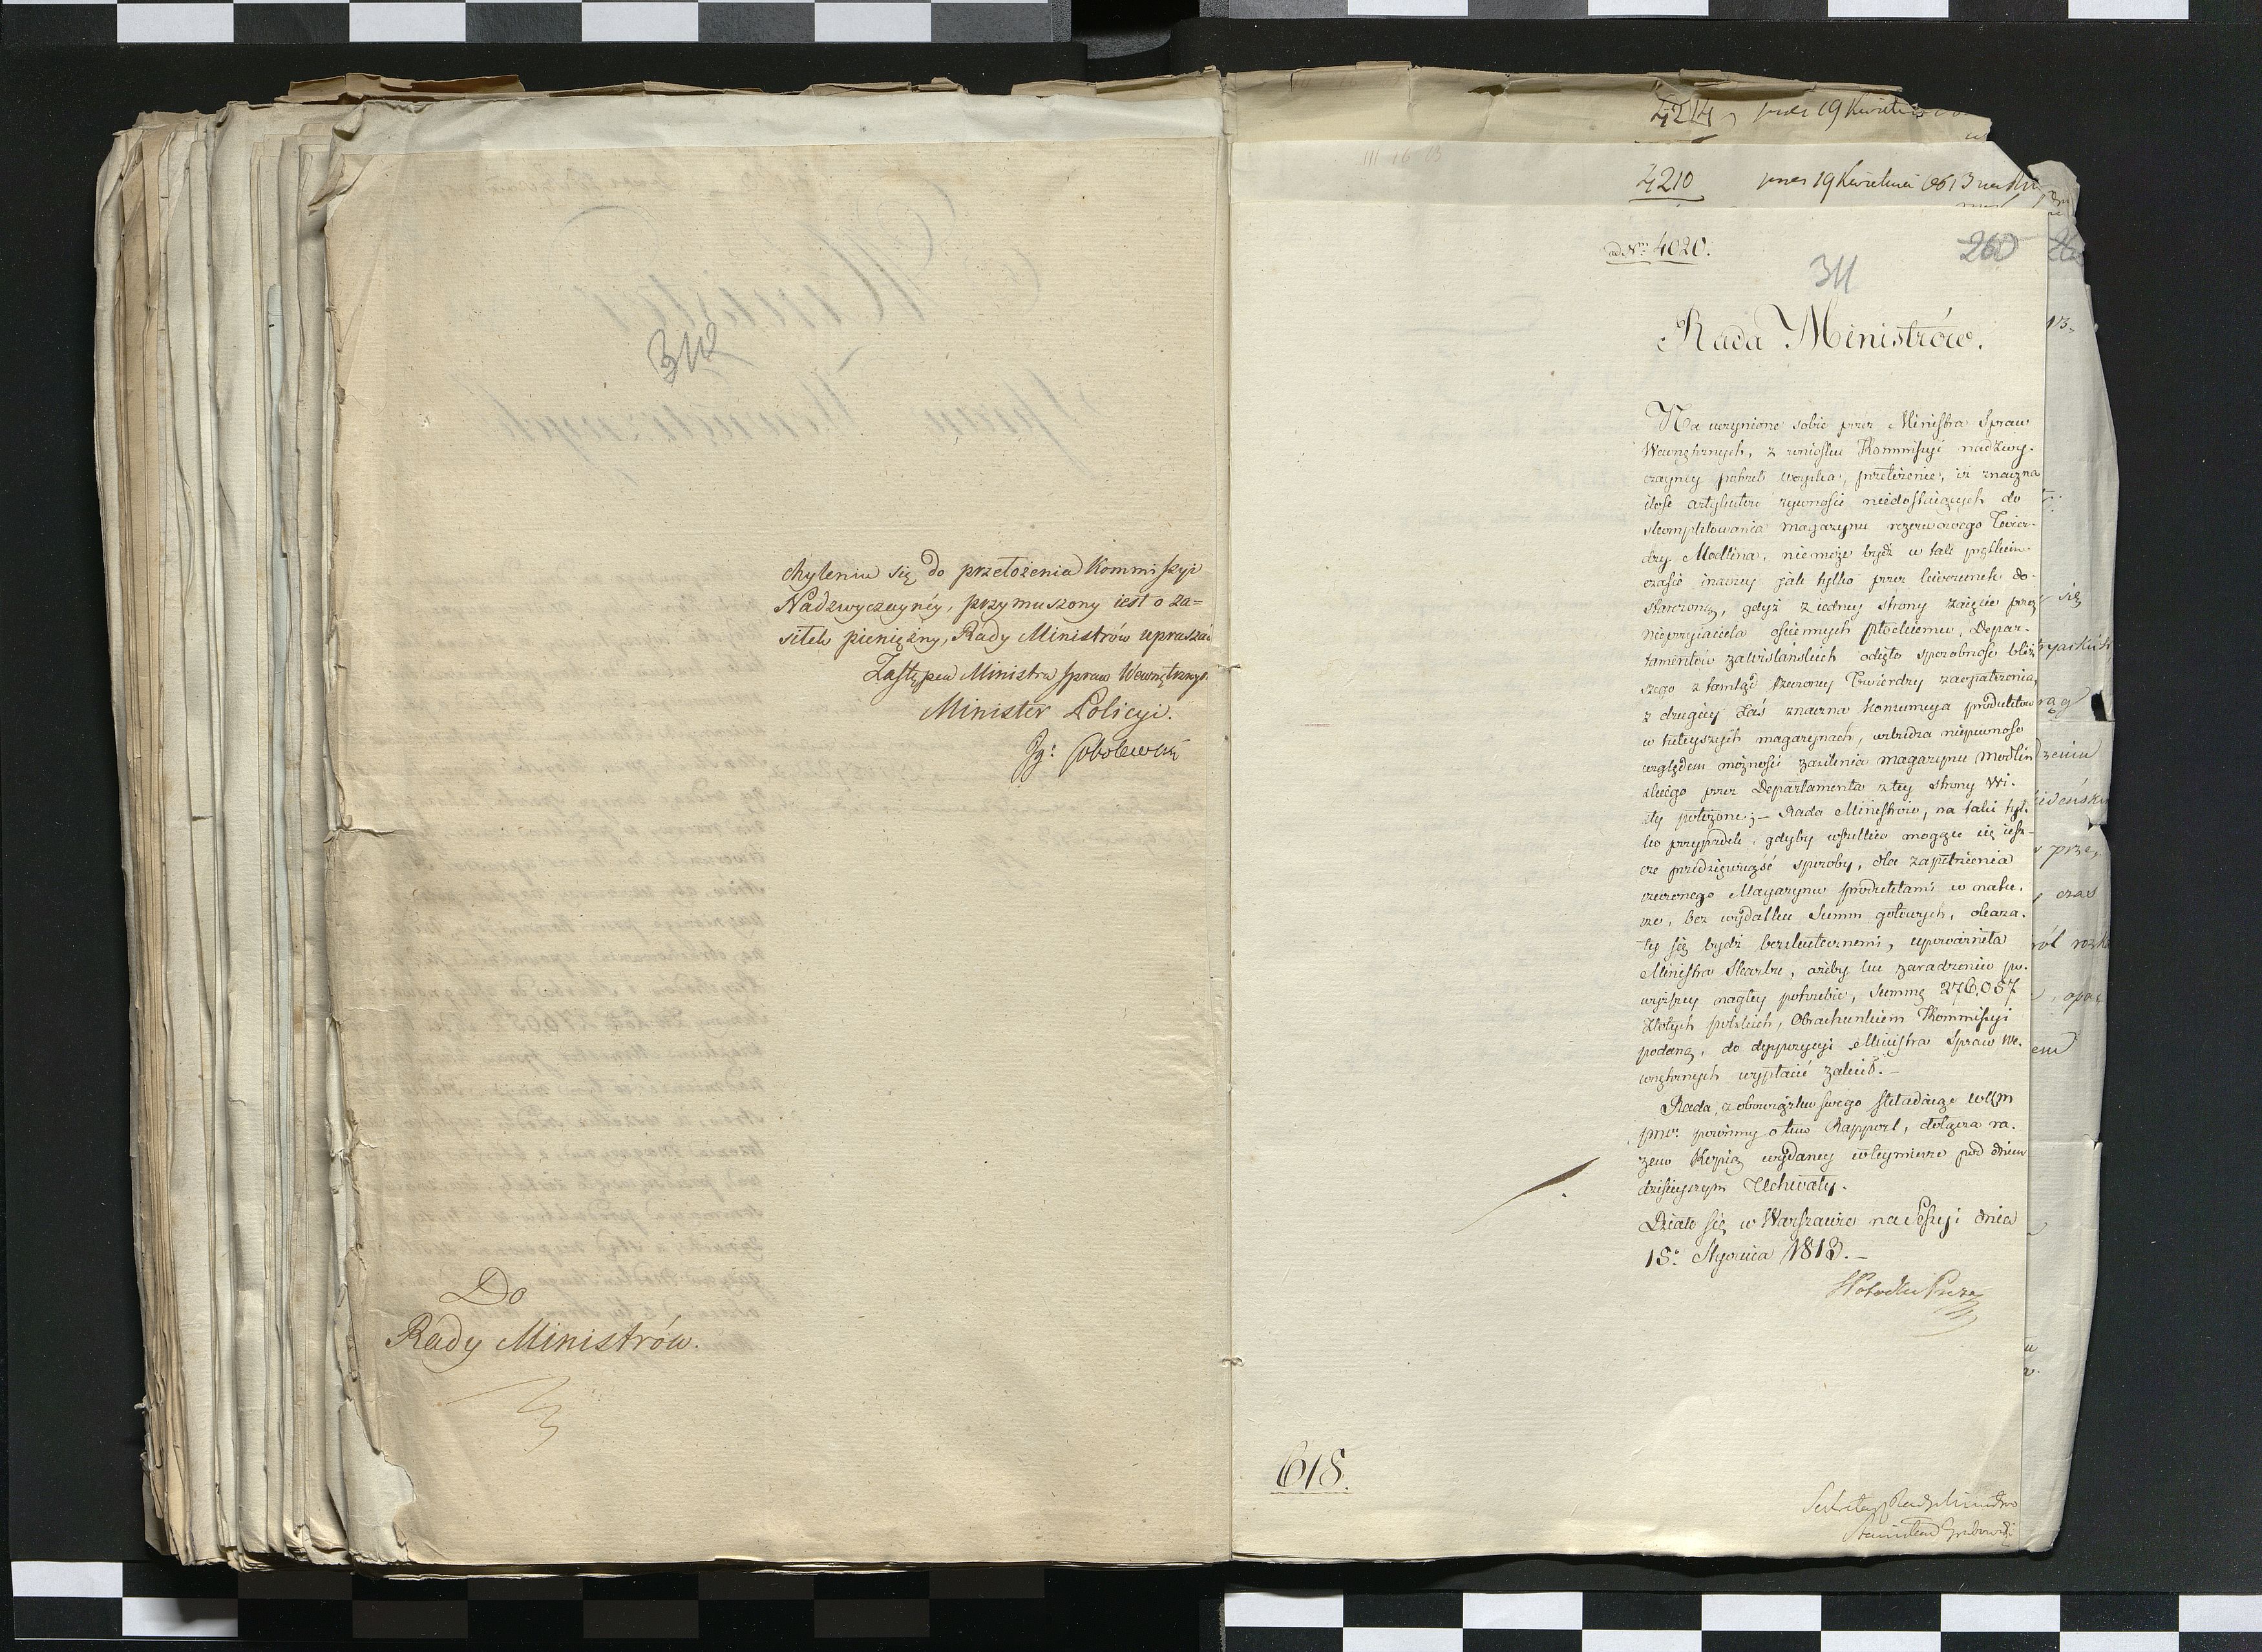 312
chyleniu się do przełożenia Kommissyi
Nadzwyczayney, przymuszony iest o za=
siłek pieniężny, Rady Ministrów upraszać
Zastępca Ministra Spraw Wewnętrznych
Minister Policyi.
Jg: Sobolewski
Do
Rady Ministrów.
4214
19 Kwietnia
4210
19 Kwietnia
ad Nrm 4020.
311
260
Rada Ministrów.
Na uczynione sobie przez Ministra Spraw
Wewnętrznych, z wniosku Kommissyi nadzwy-
czayney potrzeb woyska, przełożenie, iż znaczna
ilość artykułów żywności niedostaiących do
skompletowania magazynu rezerwowego Twier-
dzy Modlina, nie może bydź w tak prętkim
czasie inaczey jak tylko przez liwerunek do-
starczoną, gdyż z iedney strony zaięcie przez
nieprzyiaciela ościennych Płockiemu, Depar-
tamentów zawiślańskich odięło sposobność bliż
szego z tamtąd rzeczoney Twierdzy zaopatrzenia,
z drugiey zaś znaczna konsumcya produktów
w tuteyszych magazynach, wzbudza niepewność
względem możności zasilenia magazynu Modlin
skiego przez Departamenta z tey strony Wi-
sły położone; – Rada Ministrów, na taki tyl-
ko przypadek, gdyby wszelkie mogące się iesz-
cze przedsięwziąść sposoby, dla zapełnienia
rzeczonego Magazynu produktami w natu-
rze, bez wydatku Summ gotowych, okaza-
ły się bydź bezskutecznemi, upoważniła
Ministra Skarbu, ażeby ku zaradzeniu po-
wyższey nagłey potrzebie, summę 276,057
Złotych polskich, Obrachunkiem Kommissyi
podaną, do dyspozycyi Ministra Spraw We-
wnętrznych wypłacić zalecił. –
Rada, z obowiązku swego składaiąc WCM
powinny o tem Rapport, dołącza ra-
zem Kopią wydaney w tey mierze pod dniem
dzisieyszym Uchwały.
Działo się w Warszawie na Sessyi dnia
15. Stycznia 1813. –
S Potocki Prezes
618.
Sekretarz Rady Ministrów
Stanisław Grabowski